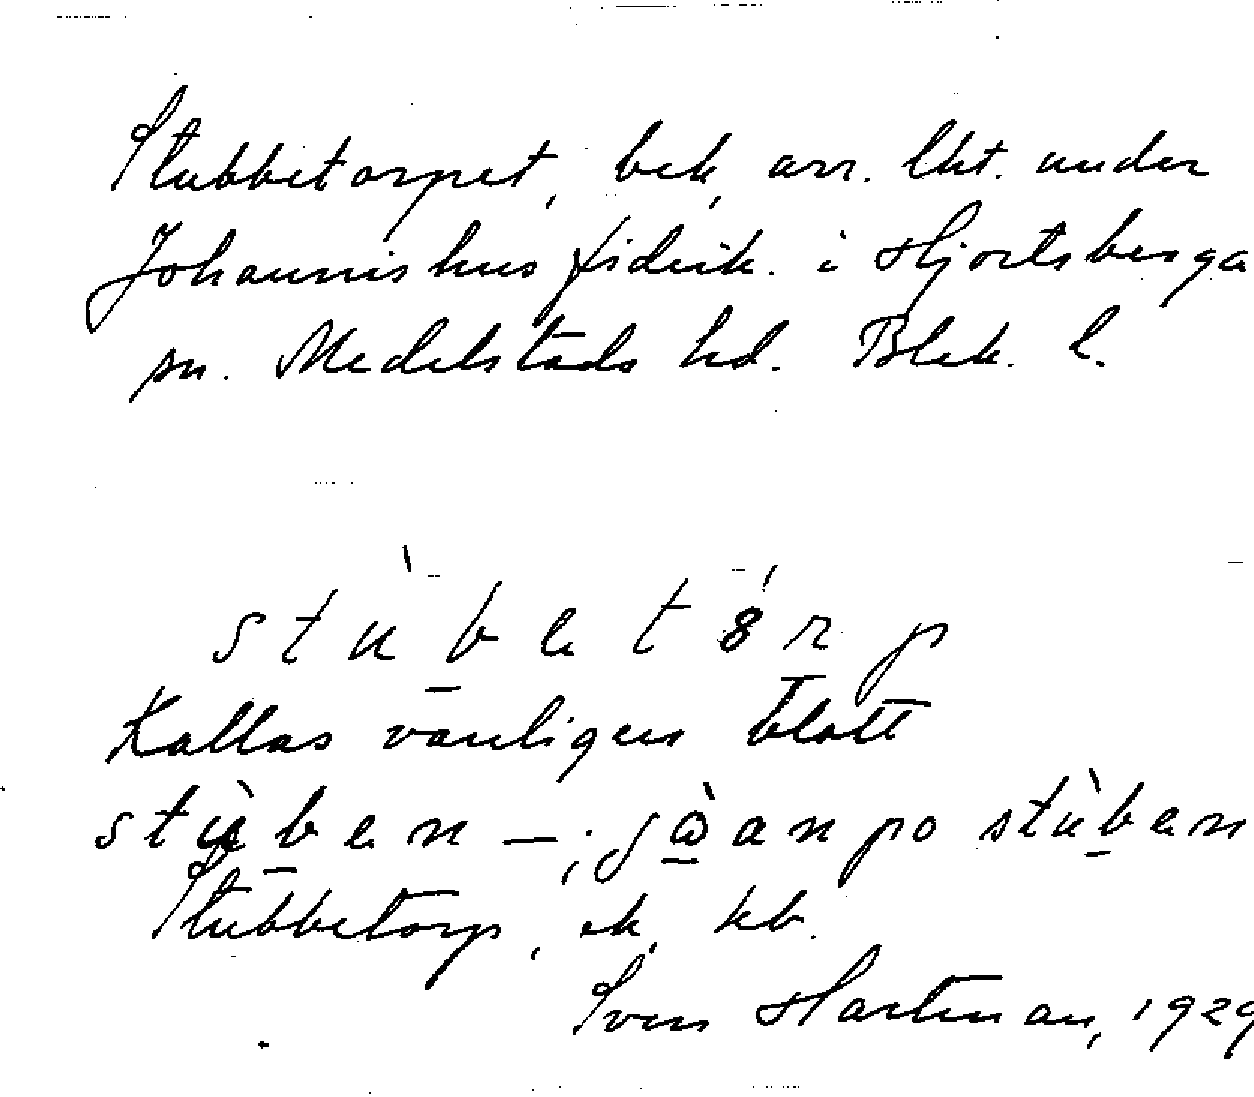 Stubbetorpet, bek, arr. lht. under
Johannishus fideik. i Hjortsberga
sn. Medelstads hd. Blek. l.
stùb̲etórp
Kallas vanligen blott
stùb̲en – ; jò̲an po stùb̲en
Stubbetorp, ek, kb.
Sven Hartman, 1929